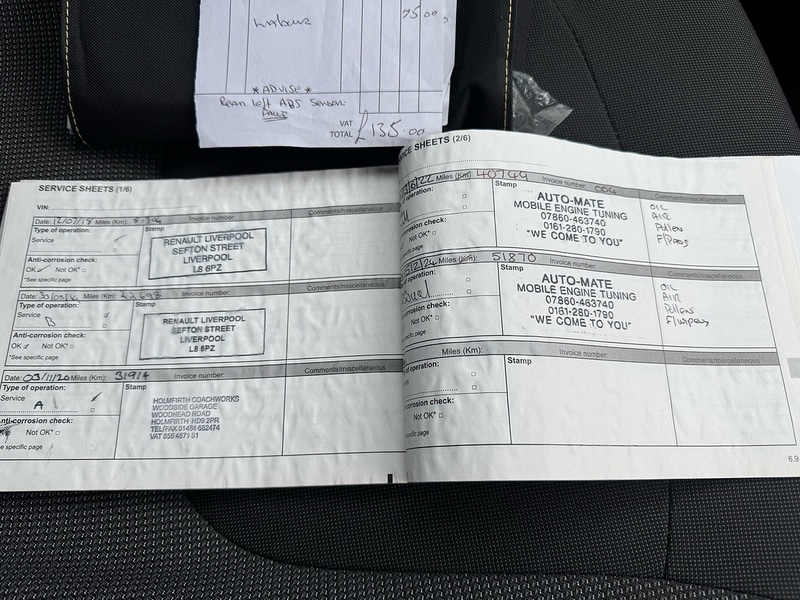 Labour 75 00
*ADVISE*
Rear left ABS Sensor
VAT
TOTAL £135.00
SERVICE SHEETS (1/6)
VIN:
Date: Miles (Km): Invoice number: Comments/miscellaneous
Type of operation: Stamp
Service
Anti-corrosion check:
OK Not OK*
*See specific page
RENAULT LIVERPOOL
SEFTON STREET
LIVERPOOL
L8 6PZ
Date: Miles (Km): Invoice number: Comments/miscellaneous
Type of operation: Stamp
Service
B
Anti-corrosion check:
OK Not OK*
*See specific page
RENAULT LIVERPOOL
SEFTON STREET
LIVERPOOL
L8 6PZ
Date: 03/11/20 Miles (Km): 31914 Invoice number: Comments/miscellaneous
Type of operation: Stamp
Service
A
Anti-corrosion check:
Not OK*
see specific page
HOLMFIRTH COACHWORKS
WOODSIDE GARAGE
WOODHEAD ROAD
HOLMFIRTH HD9 2PR
TEL/FAX 01484 682474
SERVICE SHEETS (2/6)
Miles (Km): 40749 Invoice number: Comments/miscellaneous
operation: Stamp
corrosion check:
Not OK*
specific page
AUTO-MATE
MOBILE ENGINE TUNING
07860-463740
0161-280-1790
"WE COME TO YOU"
OIL
AIR
Pollen
Miles (Km): 51870 Invoice number: Comments/miscellaneous
operation: Stamp
corrosion check:
Not OK*
specific page
AUTO-MATE
MOBILE ENGINE TUNING
07860-463740
0161-280-1790
"WE COME TO YOU"
OIL
AIR
Pollen
Miles (Km): Invoice number: Comments/miscellaneous
of operation: Stamp
corrosion check:
Not OK*
specific page
6.9